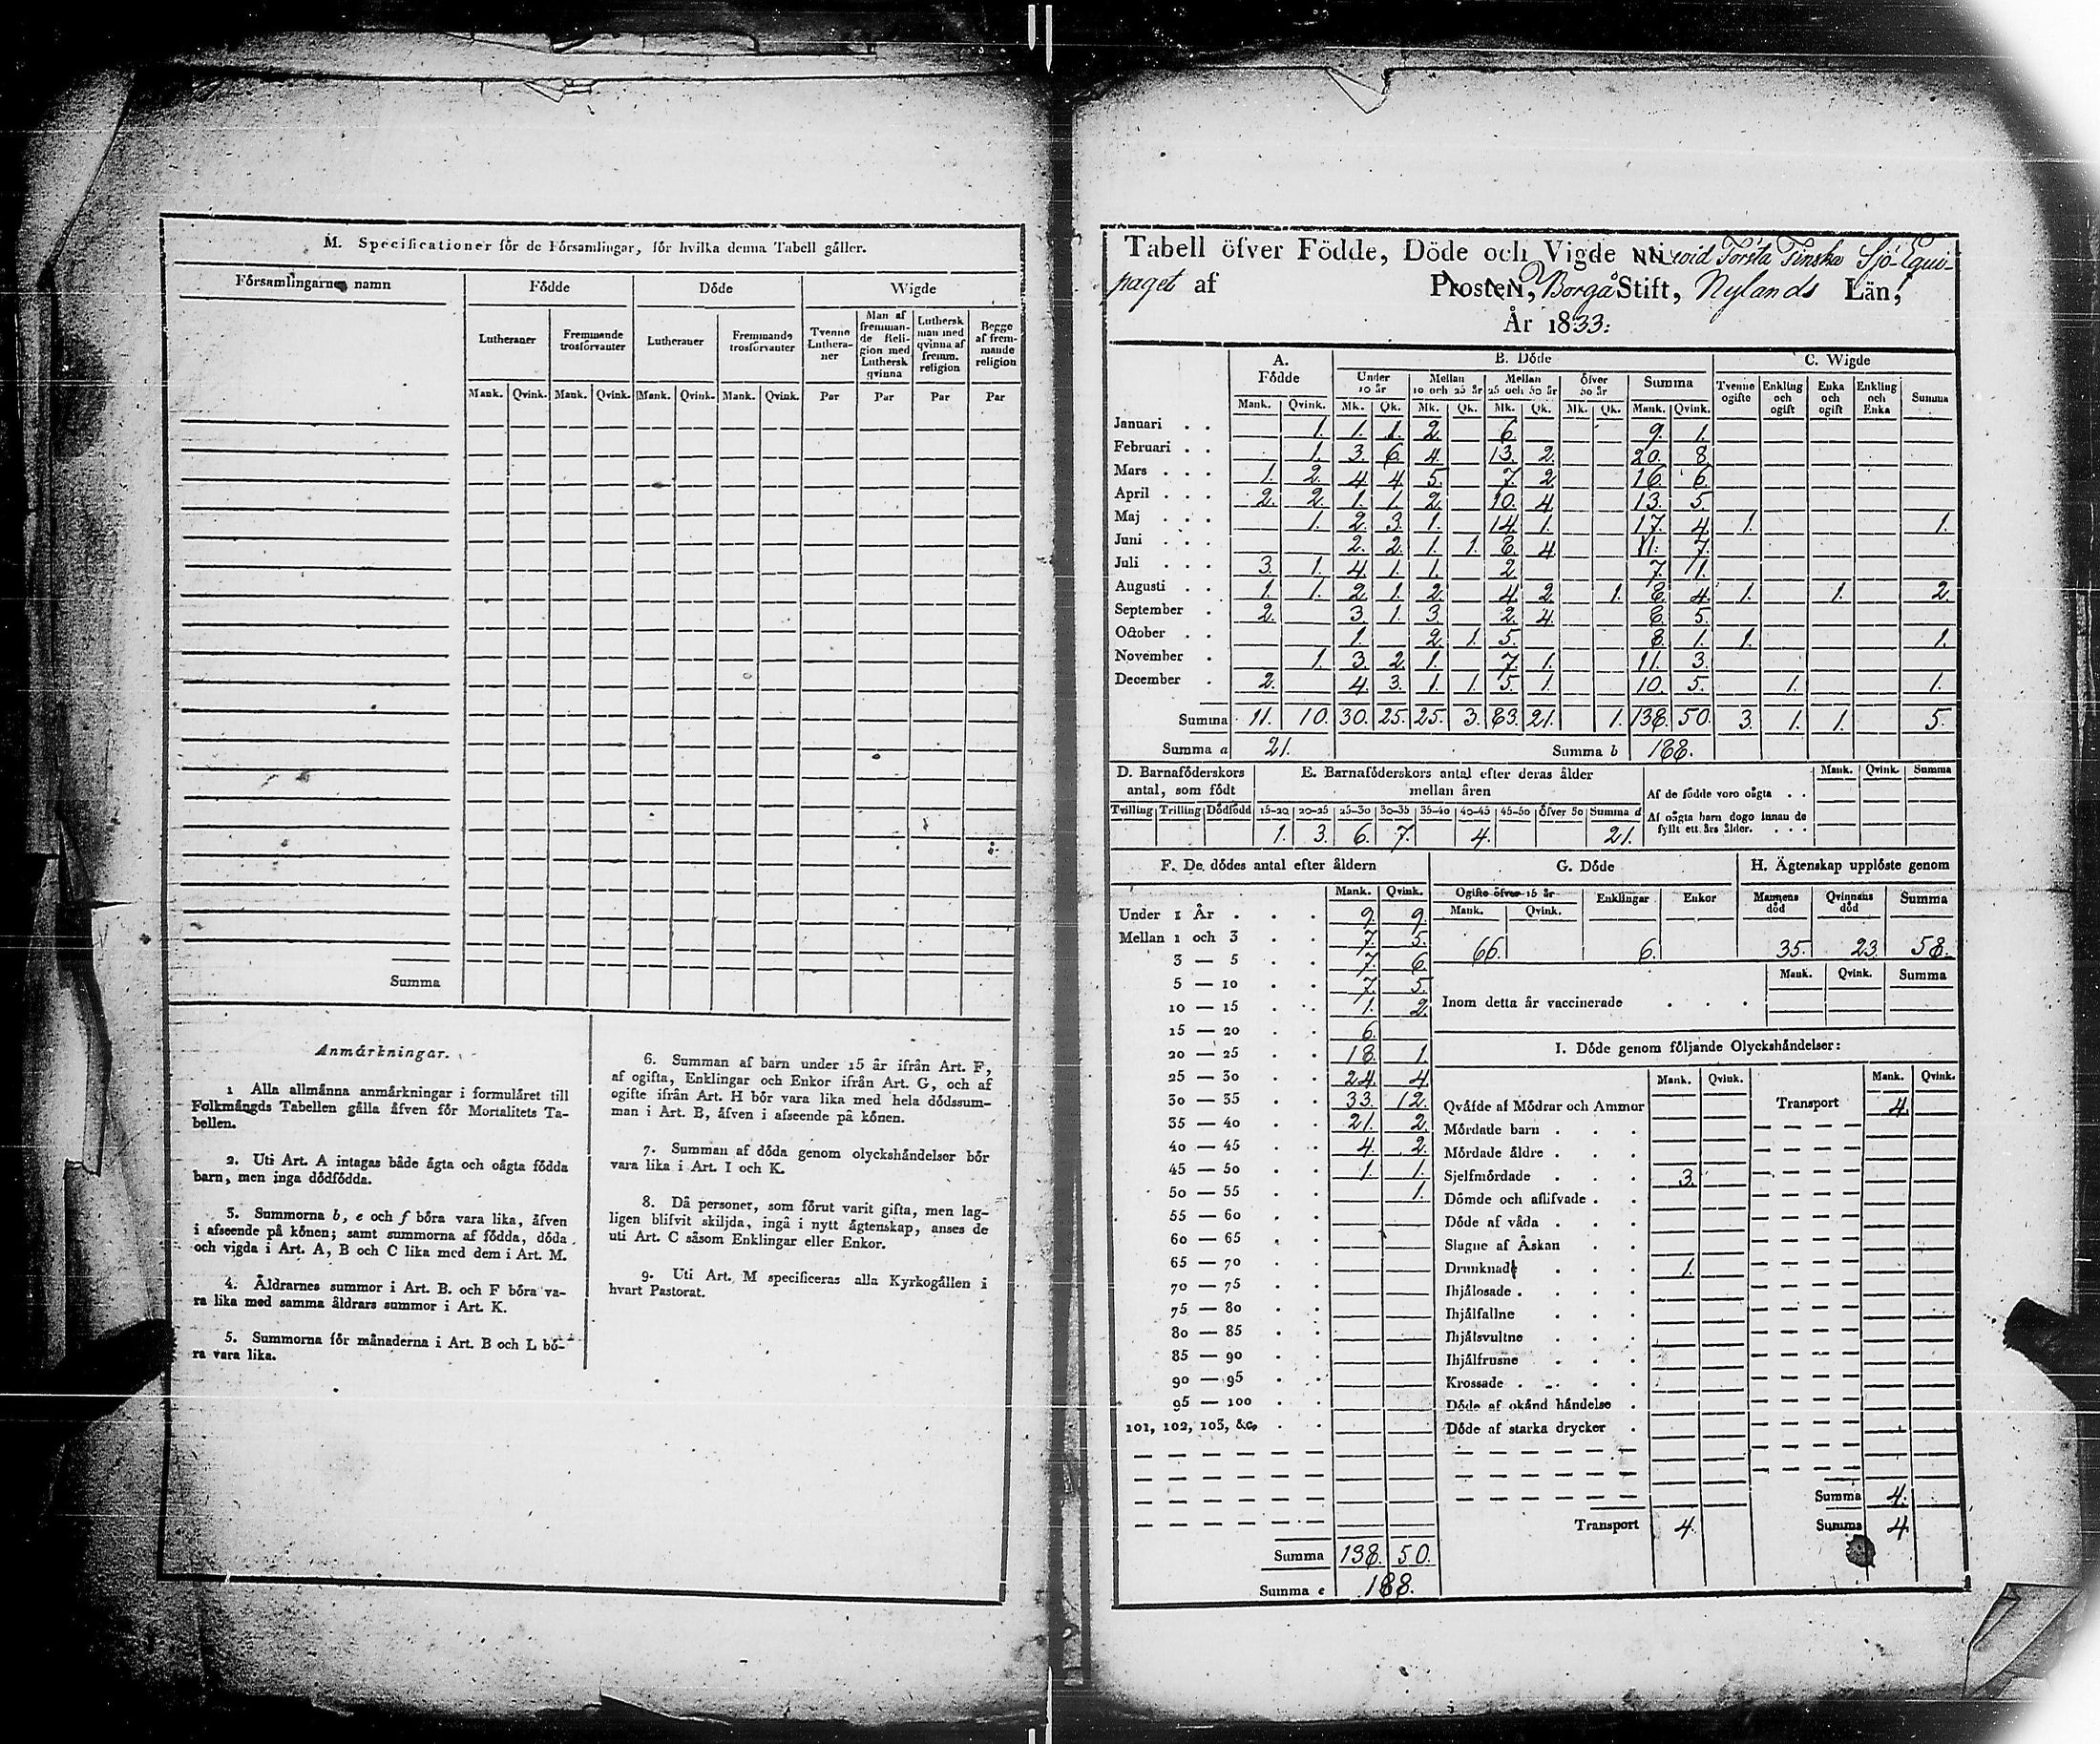 M. Specificationer för de Församlingar, för hvilka denna Tabell gäller.
Församlingarnes namn | Födde | Döde | Wigde
Lutheraner | Fremmande trosförvanter | Lutheraner | Fremmande trosförvanter | Tvenne Lutheraner | Man af fremmande Religion med Luthersk qvinna | Luthersk man med qvinna af fremm. religion | Begge af fremmande religion
Mank. | Qvink. | Mank. | Qvink. | Mank. | Qvink. | Mank. | Qvink. | Par | Par | Par | Par
Summa
Anmärkningar.
1 Alla allmänna anmärkningar i formuläret till
Folkmängds Tabellen gälla äfven för Mortalitets Ta-
bellen.
2. Uti Art. A intagas både ägta och oägta födda
barn, men inga dödfödda.
3. Summorna b, e och f böra vara lika, äfven
i afseende på könen; samt summorna af födda, döda
och vigda i Art. A, B och C lika med dem i Art. M.
4. Åldrarnes summor i Art. B. och F böra va-
ra lika med samma åldrars summor i Art. K.
5. Summorna för månaderna i Art. B och L bö-
ra vara lika.
6. Summan af barn under 15 år ifrån Art. F,
af ogifta, Enklingar och Enkor ifrån Art. G, och af
ogifte ifrån Art. H bör vara lika med hela dödssum-
man i Art. B, äfven i afseende på könen.
7. Summan af döda genom olyckshändelser bör
vara lika i Art. I och K.
8. Då personer, som förut varit gifta, men lag-
ligen blifvit skiljda, ingå i nytt ägtenskap, anses de
uti Art. C såsom Enklingar eller Enkor.
9. Uti Art. M specificeras alla Kyrkogällen i
hvart Pastorat.
Tabell öfver Födde, Döde och Vigde wid Första Finska Sjö-Equi-
paget af Prosten, Borgå Stift, Nylands Län,
År 1833:
A. Födde | B. Döde | C. Wigde
Under 10 år | Mellan 10 och 25 år | Mellan 25 och 50 år | Öfver 50 år | Summa | Tvenne ogifte | Enkling och ogift | Enka och ogift | Enkling och Enka | Summa
Mank. | Qvink. | Mk. | Qk. | Mk. | Qk. | Mk. | Qk. | Mk. | Qk. | Mank. | Qvink.
Januari . . 1. 1. 1. 2. 6. 9. 1.
Februari . . 1. 3. 6. 4. 13. 2. 20. 8.
Mars . . . 1. 2. 4. 4. 5. 7. 2. 16. 6.
April . . . 2. 2. 1. 1. 2. 10. 4. 13. 5.
Maj . . . 1. 2. 3. 1. 14. 1. 17. 4. 1. 1.
Juni . . . 2. 2. 1. 1. 8. 4. 11. 7.
Juli . . . 3. 1. 4. 1. 1. 2. 7. 1.
Augusti . . 1. 1. 2. 1. 2. 4. 2. 1. 8. 4. 1. 1. 2.
September . 2. 3. 1. 3. 2. 4. 8. 5.
October . . 1. 2. 1. 5. 8. 1. 1. 1.
November . 1. 3. 2. 1. 7. 1. 11. 3.
December . 2. 4. 3. 1. 1. 5. 1. 10. 5. 1. 1.
Summa 11. 10. 30. 25. 25. 3. 83. 21. 1. 138. 50. 3. 1. 1. 5.
Summa a 21. Summa b 188.
D. Barnaföderskors antal, som födt | E. Barnaföderskors antal efter deras ålder mellan åren
Tvilling | Trilling | Dödfödd | 15-20 | 20-25 | 25-30 | 30-35 | 35-40 | 40-45 | 45-50 | öfver 50 | Summa d
1. 3. 6. 7. 4. 21.
Mank. | Qvink. | Summa
Af de födde voro oägta . .
Af oägta barn dogo innan de
fyllt ett års ålder. . . .
F. De dödes antal efter åldern
Mank. | Qvink.
Under 1 År . . . 9. 9.
Mellan 1 och 3 . . 7. 5.
3 — 5 . . 7. 6.
5 — 10 . . 7. 5.
10 — 15 . . 1. 2.
15 — 20 . . 6.
20 — 25 . . 18. 1.
25 — 30 . . 24. 4.
30 — 35 . . 33. 12.
35 — 40 . . 21. 2.
40 — 45 . . 4. 2.
45 — 50 . . 1. 1.
50 — 55 . . 1.
55 — 60 . .
60 — 65 . .
65 — 70 . .
70 — 75 . .
75 — 80 . .
80 — 85 . .
85 — 90 . .
90 — 95 . .
95 — 100 . .
101, 102, 103, &c. . .
Summa 138. 50.
Summa e 188.
G. Döde
Ogifte öfver 15 år | Enklingar | Enkor
Mank. | Qvink.
66. 6.
H. Ägtenskap upplöste genom
Mannens död | Qvinnans död | Summa
35. 23. 58.
Mank. | Qvink. | Summa
Inom detta år vaccinerade . . .
I. Döde genom följande Olyckshändelser:
Mank. | Qvink. | Mank. | Qvink.
Qväfde af Mödrar och Ammor Transport 4.
Mördade barn . . .
Mördade äldre . . .
Sjelfmördade . . . 3.
Dömde och aflifvade . .
Döde af våda . . .
Slagne af Åskan . .
Drunknade . . . 1.
Ihjälosade . . . .
Ihjälfallne . . .
Ihjälsvultne . . .
Ihjälfrusne . . .
Krossade . . . .
Döde af okänd händelse .
Döde af starka drycker .
Summa 4.
Transport 4. Summa 4.